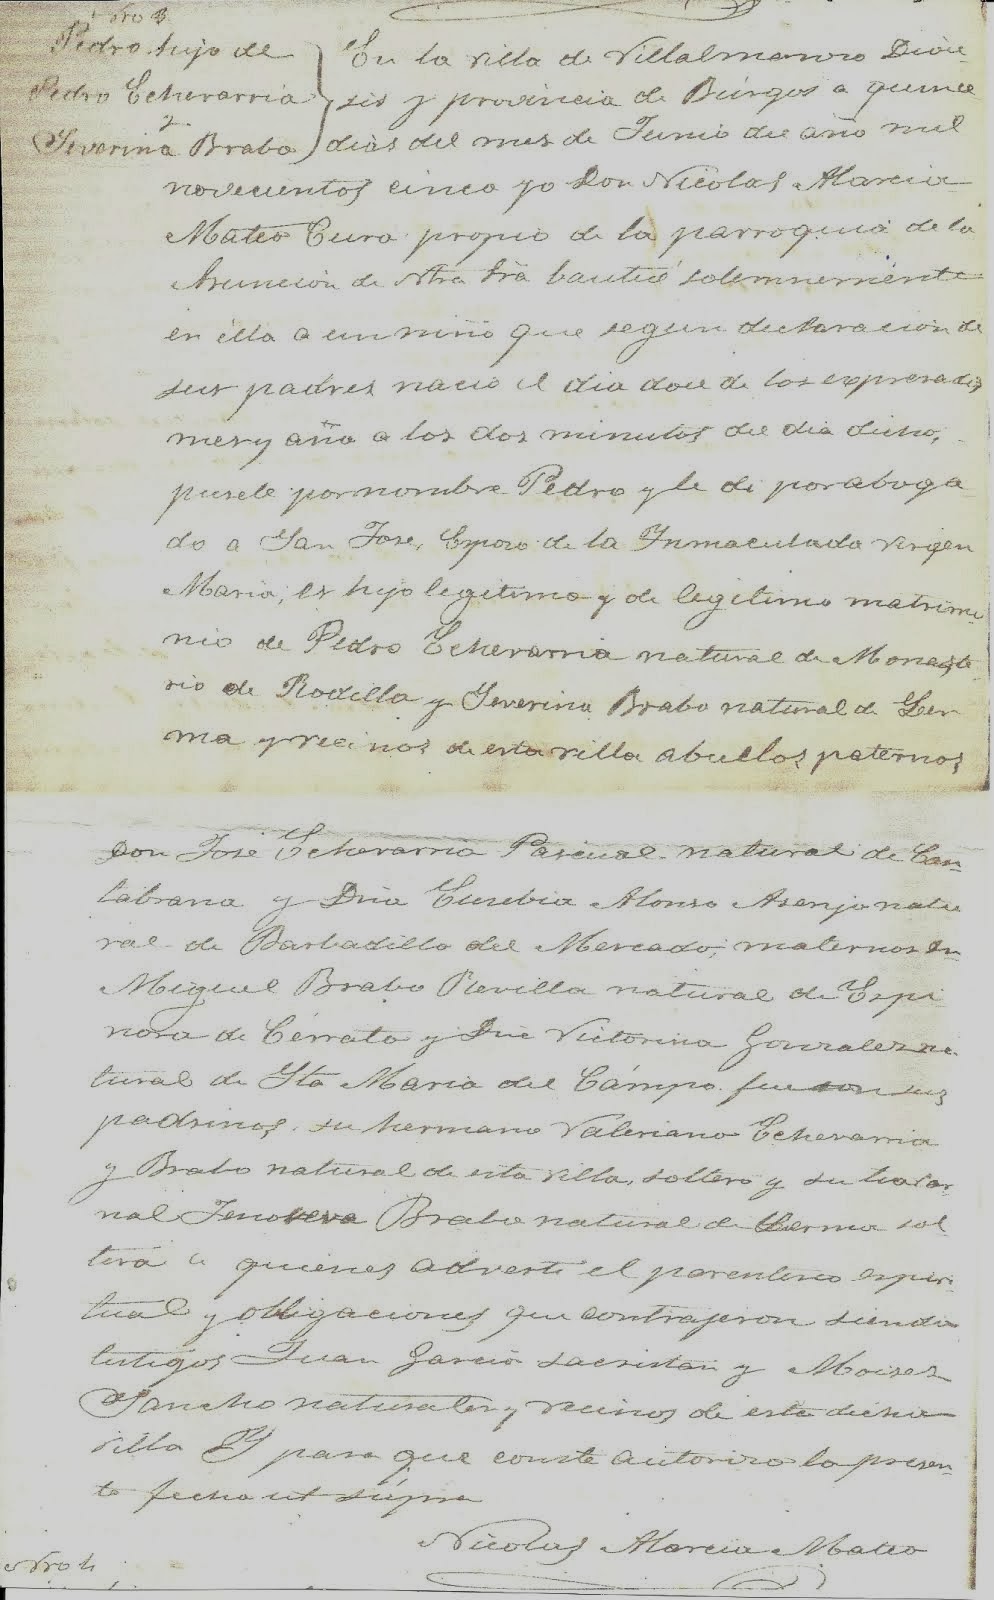 Nro 3
Pedro hijo de
Pedro Echevarria
y
Severina Brabo
En la villa de Villalmanzo Dioce-
sis y provincia de Búrgos a quince
dias del mes de Junio del año mil
novecientos cinco yo Don Nicolas Marcia
Mateo Cura propio de la parroquia de la
Asunción de Ntra Sra bauticé solemnemente
en élla a un niño que segun declaracion de
sus padres nacio el dia doce de los expresados
mes y año a los dos minutos del dia dicho,
pusele por nombre Pedro y le di por aboga
do a San Jose, Esposo de la Inmaculada Virgen
Maria; es hijo legitimo y de legitimo matrimo-
nio de Pedro Echevarria natural de Monaste
rio de Rodilla y Severina Brabo natural de Ler
ma y vecinos de esta villa abuelos paternos
Don José Echevarria Pascual natural de Can-
tabrana y Dña Eusebia Alonso Asenjo natu
ral de Barbadillo del Mercado; maternos Dn
Miguel Brabo Revilla natural de Espi
nosa de Cérrato y Dña Victorina Gonzalez na-
tural de Sta Maria del Cámpo fueron sus
padrinos, su hermano Valeriano Echevarria
y Brabo natural de esta villa, soltero y su tia
nal Jenoveva Brabo natural de Lerma sol
tera a quienes adverti el parentesco espiri-
tual y obligaciones que contrajeron siendo
testigos Juan Garcia sacristan y Moises
Sancho naturales y vecinos de esta dicha
villa Y para que conste autorizo la presen-
te fecha ut súpra
Nicolas Marcia Mateo
Nro 4